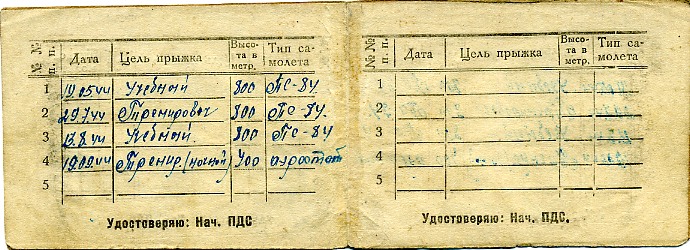 №№ п. п. Дата Цель прыжка Высота в метр. Тип самолета
1 19.05.44 Учебный 800 ПС-84
2 29.7.44 Тренировоч 800 ПС-84.
3 13.8.44 Учебный. 800 ПС-84
4 19.09.44 Тренир. (ночной) 400 аэростат
5
Удостоверяю: Нач. ПДС
№№ п. п. Дата Цель прыжка Высота в метр. Тип самолета
1
2
3
4
5
Удостоверяю: Нач. ПДС.